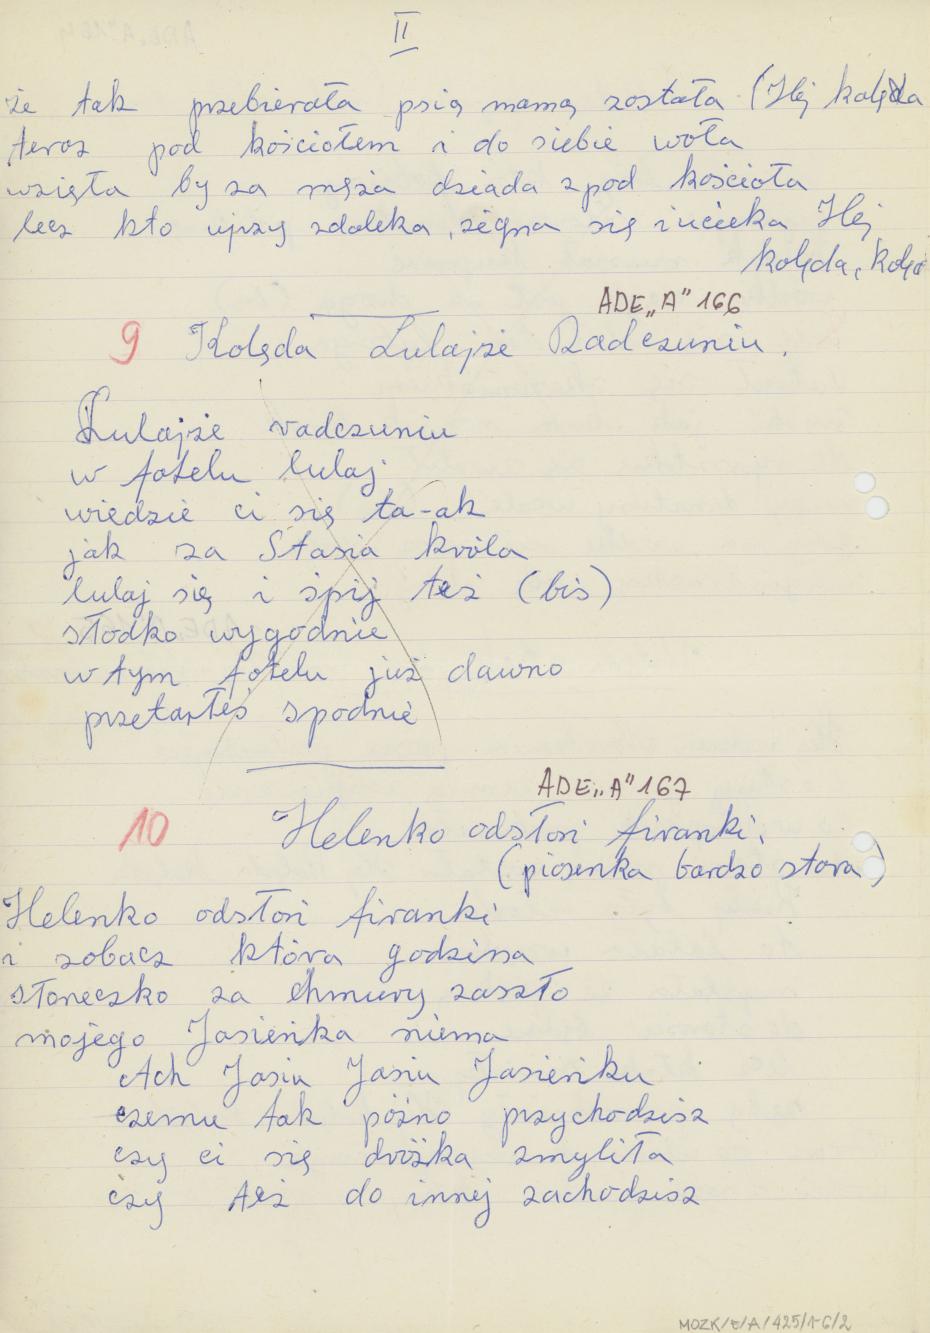 II
że tak przebierała psią mamą została (Hej kolęda
teraz pod kościołem i do siebie woła
wzięła by za męża dziada zpod kościoła
lecz kto ujrzy zdaleka, żegna się i ucieka Hej
kolęda, kolę
ADE„A" 166
9 Kolęda Lulajże Radczuniu.
Lulajże radczuniu
w fotelu lulaj
wiedzie ci się ta-ak
jak za Stasia króla
lulaj się i śpij też (bis)
słodko wygodnie
w tym fotelu już dawno
przetarłeś spodnie
ADE„A" 167
10 Helenko odsłoń firanki.
(piosenka bardzo stara)
Helenko odsłoń firanki
i zobacz która godzina
słoneczko za chmury zaszło
mojego Jasieńka niema
Ach Jasiu Jasiu Jasieńku
czemu tak późno przychodzisz
czy ci się dróżka zmyliła
czy też do innej zachodzisz
MOZK/E/A/425/1-6/2